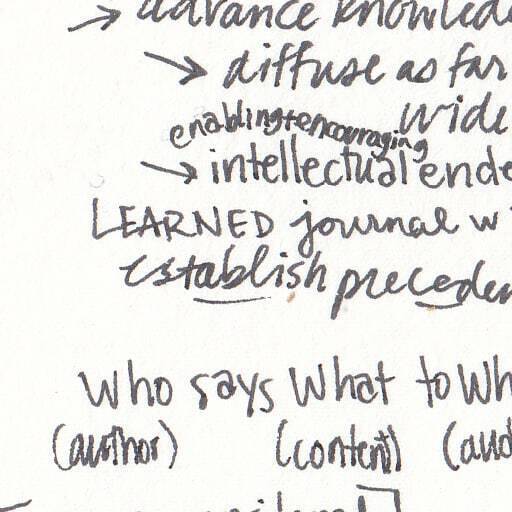 → advance knowled
→ diffuse as far
wide
enabling + encouraging
→ intellectual ende
LEARNED journal w
establish preceden
Who says What to Wh
(author) (content) (aud